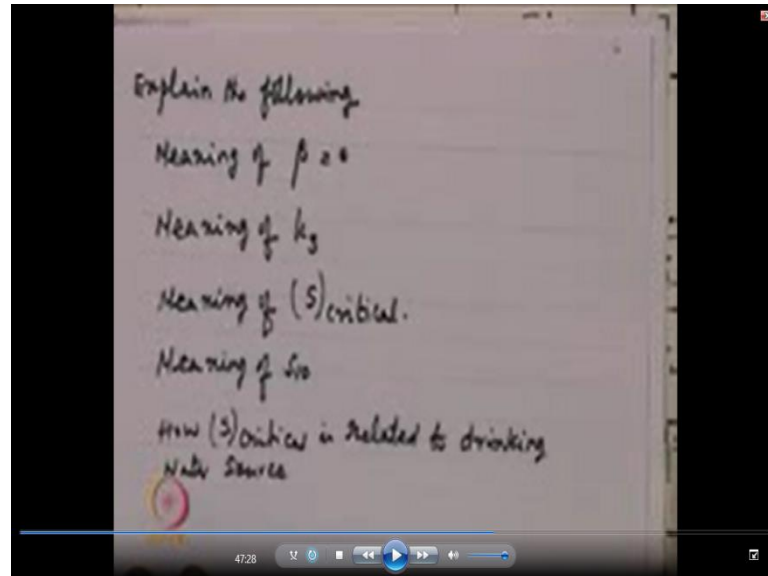 Explain the following
Meaning of β = 0
Meaning of k₃
Meaning of (S)critical.
Meaning of S₁₀
How (S)critical is related to drinking
Water Source
47:28